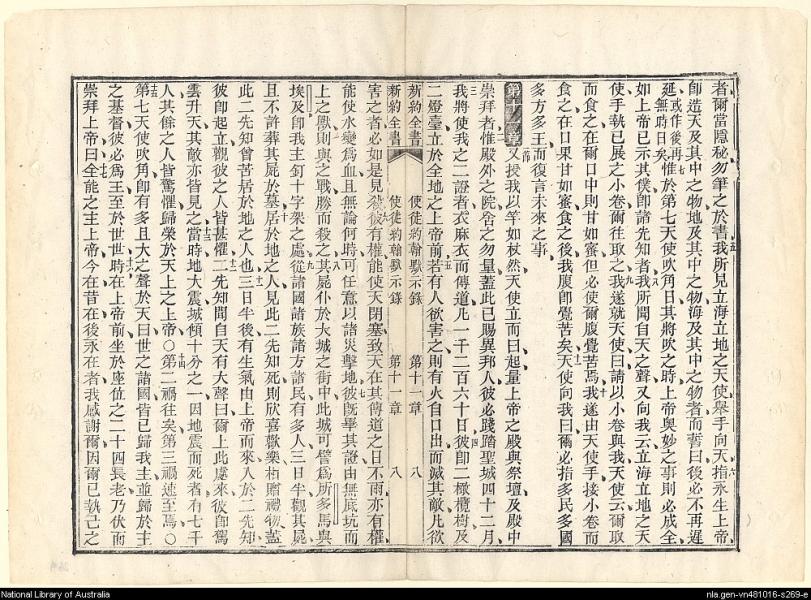 者爾當隱秘勿筆之於書我所見立海立地之天使舉手向天指永生上帝
卽造天及其中之物地及其中之物海及其中之物者而誓曰後必不再遲
延或作後再無時日矣惟於第七天使吹角日其將吹之時上帝奧妙之事則必成全
如上帝已示其僕卽諸先知者我所聞自天之聲又向我云立海立地之天
使手執已展之小卷爾往取之我遂就天使曰請以小卷與我天使云爾取
而食之在爾口中則甘如蜜但必使爾腹覺苦焉我遂由天使手接小卷而
食之在口果甘如蜜食之後我腹卽覺苦矣天使向我曰爾必指多民多國
多方多王而復言未來之事
第十一章又授我以竿如杖然天使立而曰起量上帝之殿與祭壇及殿中
崇拜者惟殿外之院舍之勿量蓋此已賜異邦人彼必踐踏聖城四十二月
我將使我之二證者衣麻衣而傳道凡一千二百六十日彼卽二橄欖樹及
二燈臺立於全地之上帝前若有人欲害之則有火自口出而滅其敵凡欲
新約全書 使徒約翰默示錄 第十一章 八
新約全書 使徒約翰默示錄 第十一章 八
害之者必如是見殺彼有權能使天閉塞致天在其傳道之日不雨亦有權
能使水變爲血且無論何時可任意以諸災擊地彼旣畢其證由無底坑而
上之獸則與之戰勝而殺之其屍仆於大城之街中此城可譬爲所多馬與
埃及卽我主釘十字架之處從諸國諸族諸方諸民有多人三日半觀其屍
且不許葬其屍於墓居於地之人見此二先知死則欣喜歡樂相贈禮物蓋
此二先知曾苦居於地之人也三日半後有生氣由上帝而來入於二先知
彼卽起立觀彼之人皆甚懼二先知聞自天有大聲曰爾上此處來彼卽駕
雲升天其敵亦皆見之當時地大震城傾十分之一因地震而死者有七千
人其餘之人皆驚懼歸榮於天上之上帝〇第二禍往矣第三禍速至焉〇
第七天使吹角卽有多且大之聲於天曰世之諸國皆已歸我主並歸於主
之基督彼必爲王至於世世時在上帝前坐於座位之二十四長老乃伏而
崇拜上帝曰全能之主上帝今在昔在後永在者我感謝爾因爾已執己之
National Library of Australia
nla.gen-vn481016-s269-e